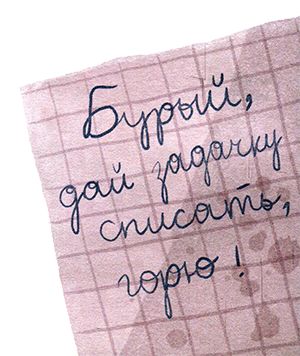 Бурый,
дай задачку
списать,
горю!